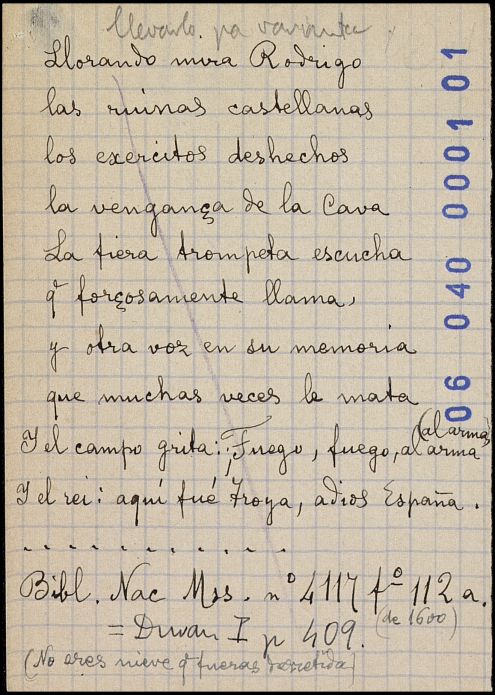 llevarlo pa variante
Llorando mira Rodrigo
las ruinas castellanas
los exercitos deshechos
la vengança de la Cava
La fiera trompeta escucha
q̃ forçosamente llama,
y otra voz en su memoria
que muchas veces le mata
(al arma)
Y el campo grita: ¡Fuego, fuego, al arma
Y el rei: aquí fué Troya, adios España.
. . . . . . . . . . . .
Bibl. Nac Mss. nº 4117 fº 112 a.
(de 1600)
= Duran I p 409.
(No eres nieve q̃ fueras derretida)
06 040 0001 01